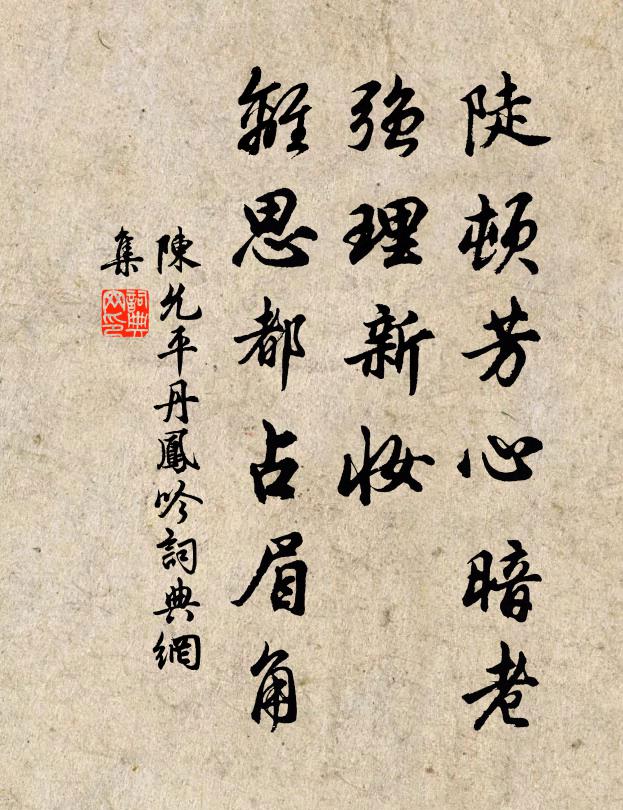 陡頓芳心暗老
強理新妝
離思都占眉角
陳允平丹鳳吟詞典網
集
詞典
网印